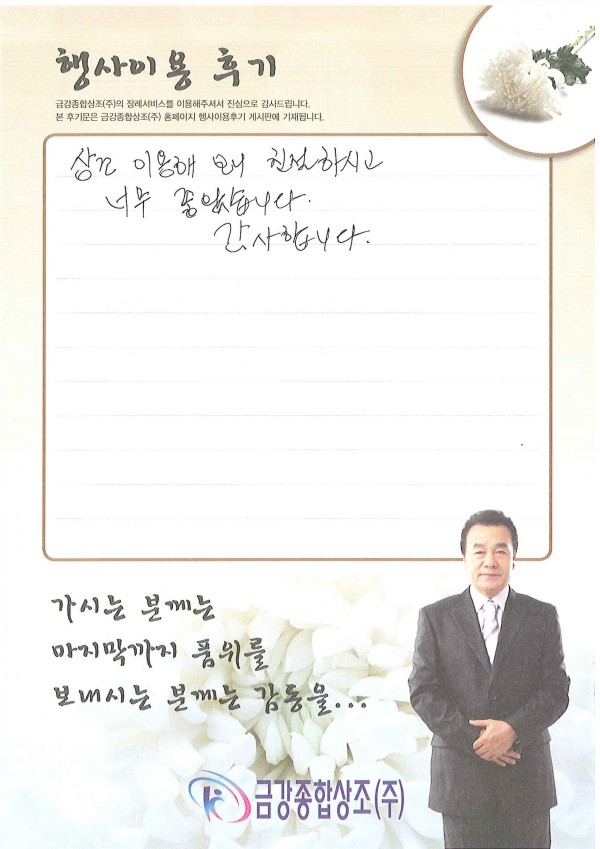 행사이용 후기
금강종합상조(주)의 장례서비스를 이용해주셔서 진심으로 감사드립니다.
본 후기문은 금강종합상조(주) 홈페이지 행사이용후기 게시판에 기재됩니다.
상조 이용해 보니 친절하시고
너무 좋았습니다.
감사합니다.
가시는 분께는
마지막까지 품위를
보내시는 분께는 감동을...
금강종합상조(주)